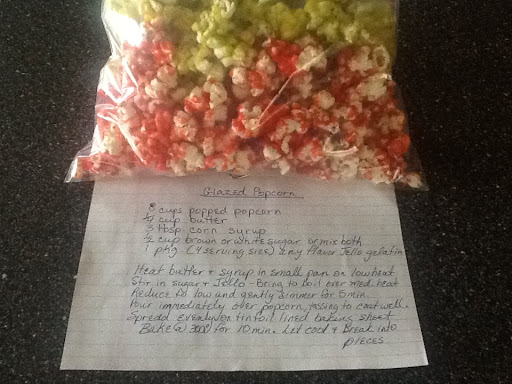 Glazed Popcorn
8 cups popped popcorn
1/4 cup butter
3 tbsp. corn syrup
1/2 cup brown or white sugar or mix both
1 pkg. (4 serving size) any flavor Jello gelatin
Heat butter & syrup in small pan on low heat
Stir in sugar & Jello - Bring to boil over med. heat
Reduce to low and gently simmer for 5 min.
Pour immediately over popcorn, tossing to coat well.
Spread evenly on tinfoil lined baking sheet
Bake @ 300° for 10 min. Let cool & Break into
pieces